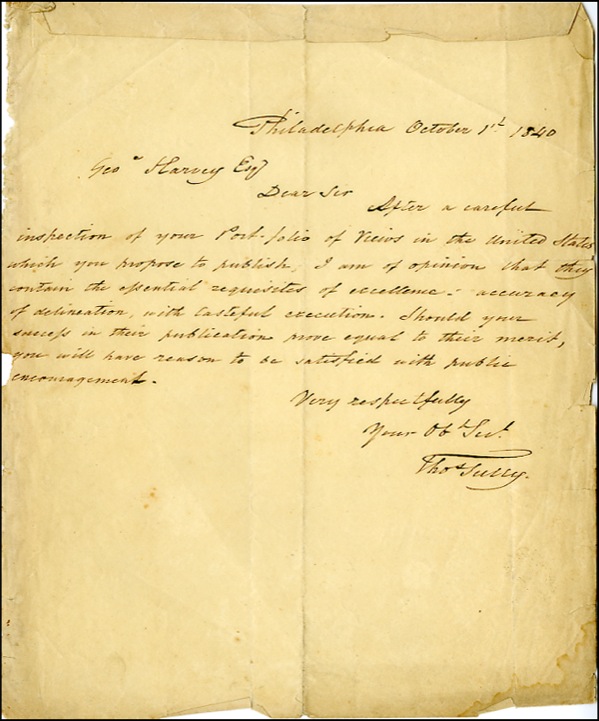 Philadelphia October 1st 1840
Geo. Harvey Esq
Dear Sir After a careful
inspection of your Port-folio of Views in the United States
which you propose to publish, I am of opinion that they
contain the essential requisites of excellence:- accuracy
of delineation, with tasteful execution. Should your
success in their publication prove equal to their merit,
you will have reason to be satisfied with public
encouragement.
Very respectfully
Your Obt Sert.
Thos Sully.